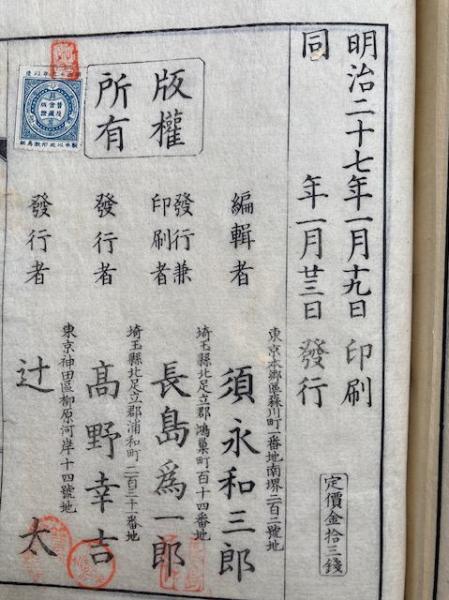 明治二十七年一月十九日印刷
同 年一月廿三日發行
定價金拾三錢
版權
所有
東京本郷區森川町一番地南堺二百二號地
編輯者 須永和三郎
埼玉縣北足立郡鴻巢町百十四番地
發行兼
印刷者 長島爲一郎
埼玉縣北足立郡浦和町二百三十一番地
發行者 髙野幸吉
東京神田區柳原河岸十四號地
發行者 辻 太